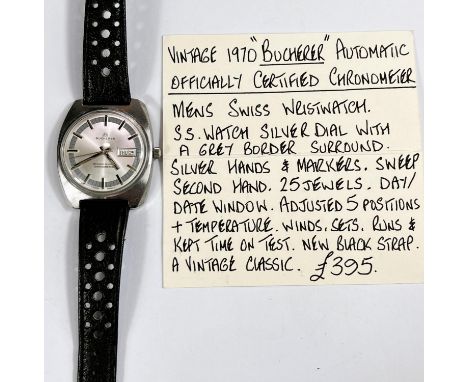 VINTAGE 1970 "BUCHERER" AUTOMATIC
OFFICIALLY CERTIFIED CHRONOMETER
MENS SWISS WRISTWATCH.
S.S. WATCH SILVER DIAL WITH
A GREY BORDER SURROUND.
SILVER HANDS & MARKERS. SWEEP
SECOND HAND. 25 JEWELS. DAY/
DATE WINDOW. ADJUSTED 5 POSITIONS
+ TEMPERATURE. WINDS. SETS. RUNS &
KEPT TIME ON TEST. NEW BLACK STRAP.
A VINTAGE CLASSIC. £395.
BUCHERER